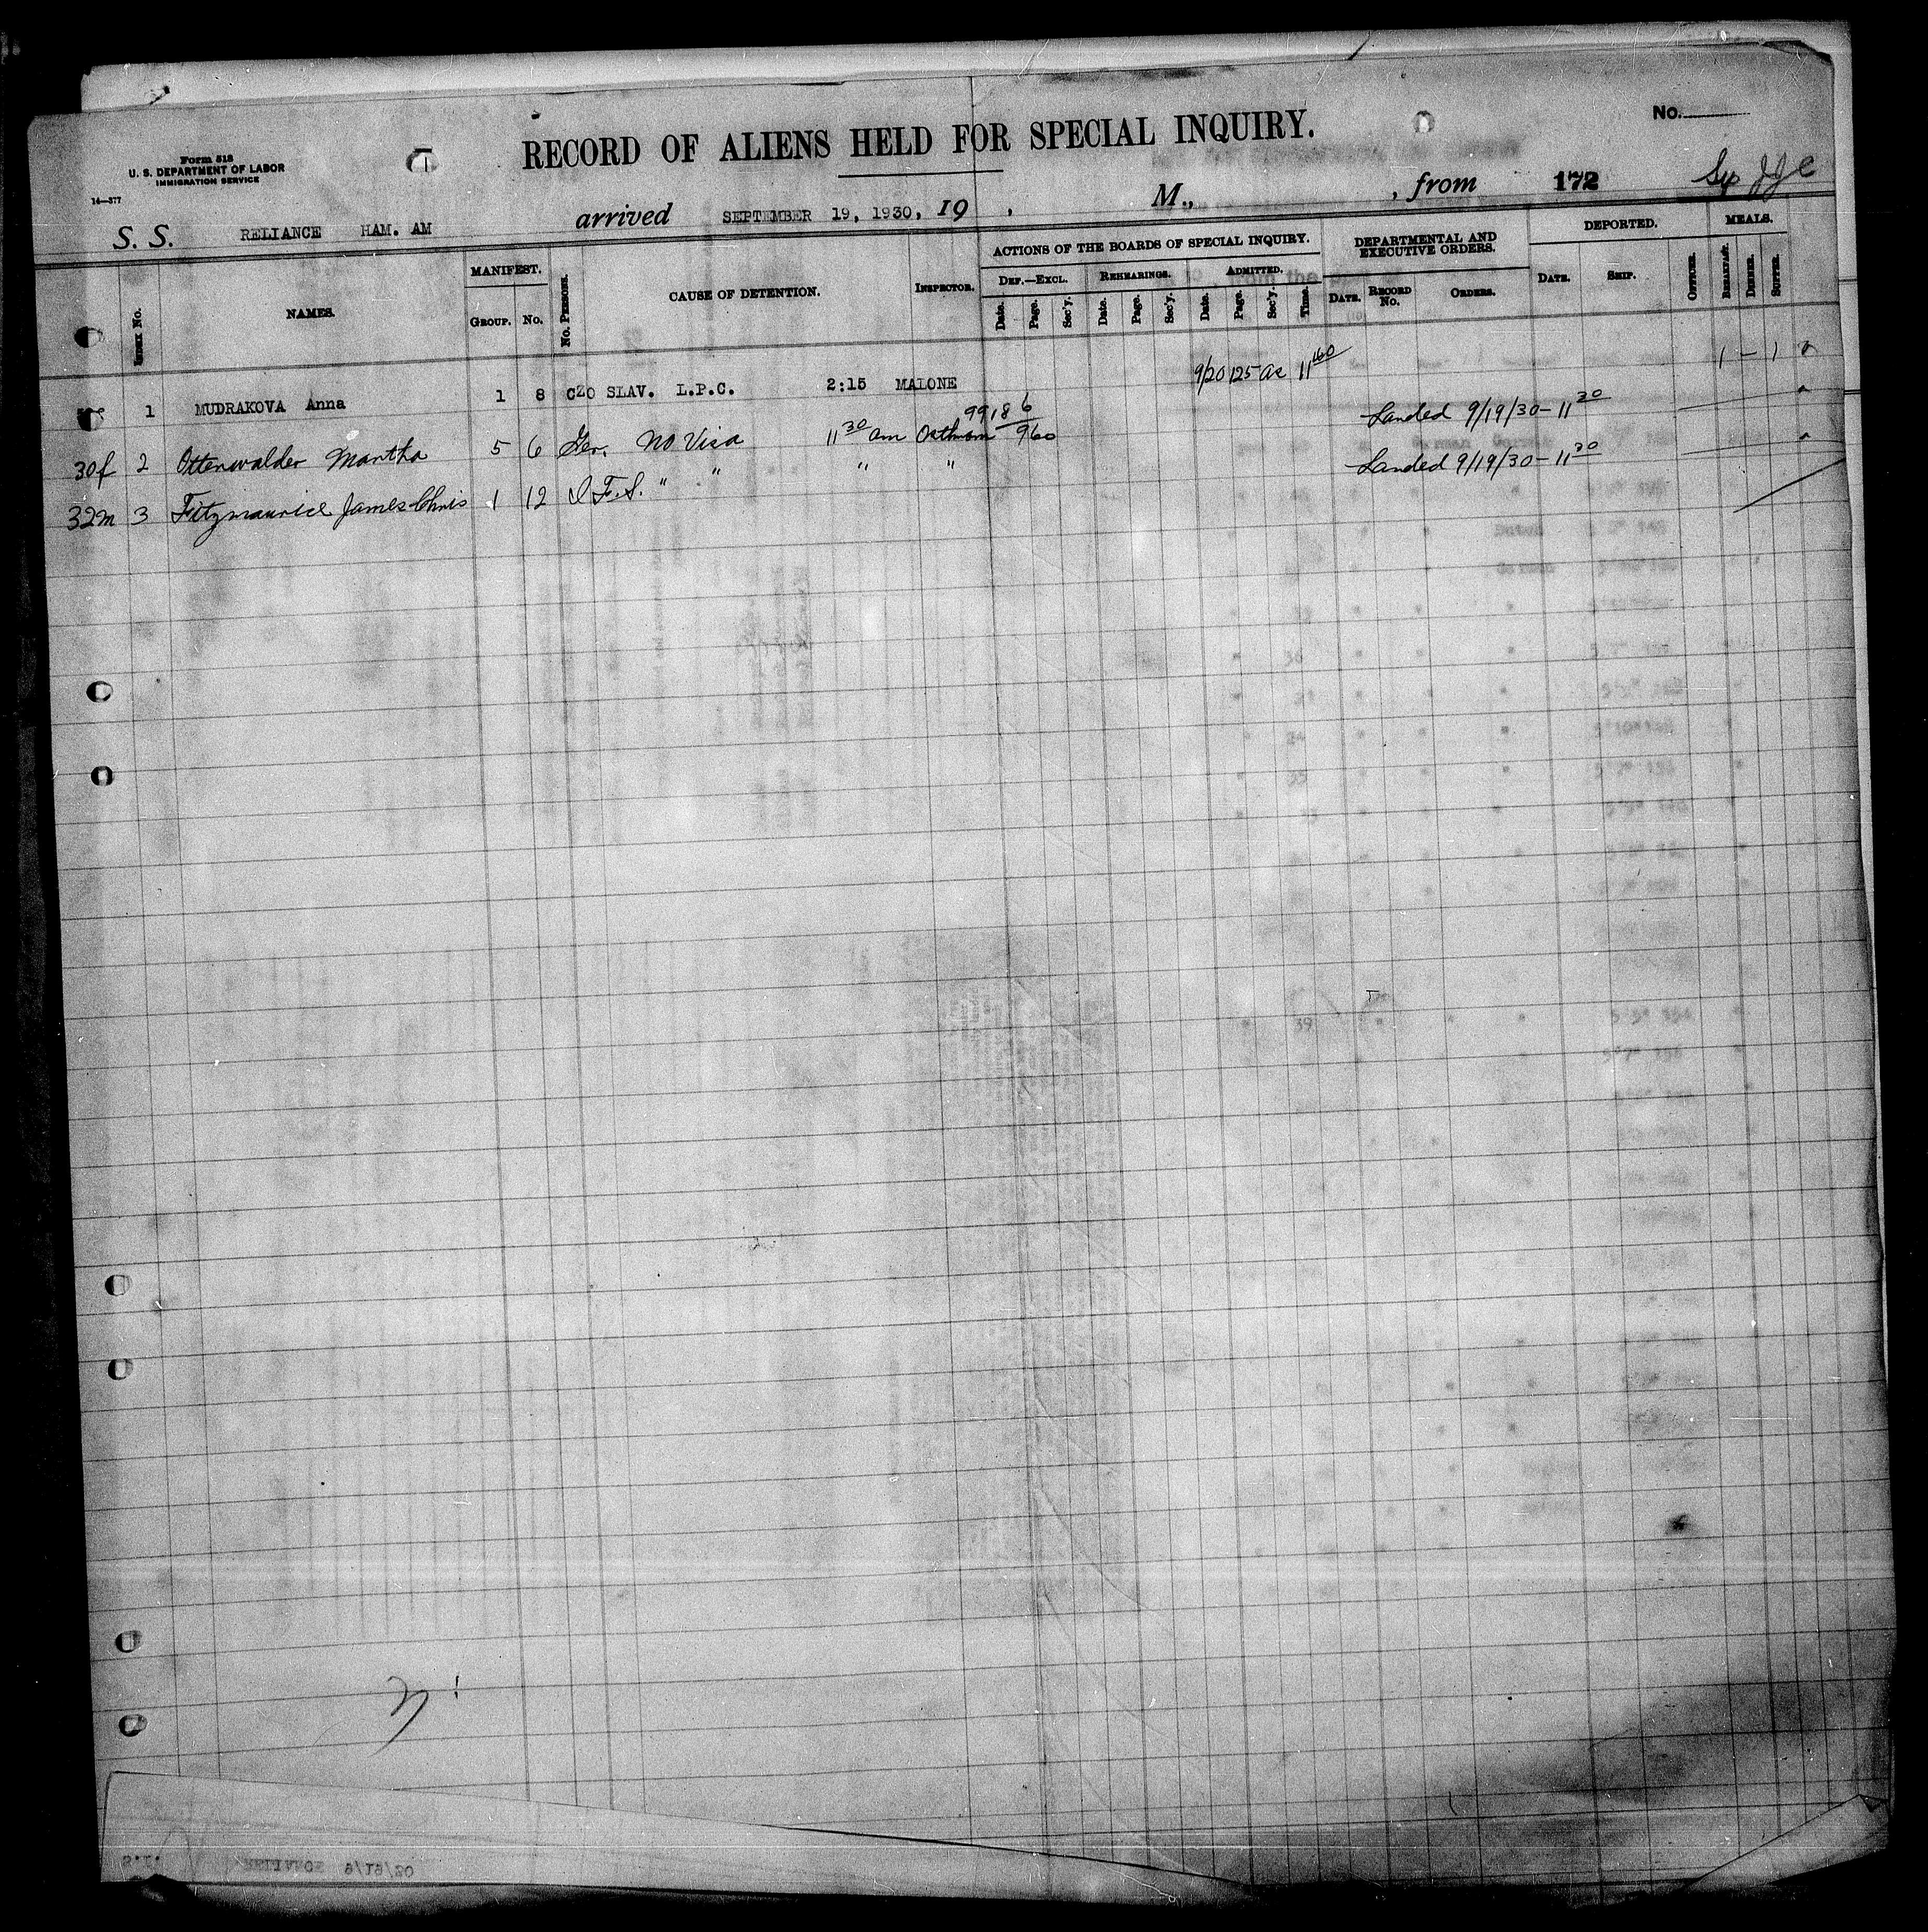 No.
RECORD OF ALIENS HELD FOR SPECIAL INQUIRY.
Form 518
U. S. DEPARTMENT OF LABOR
IMMIGRATION SERVICE
14—377
S. S. RELIANCE HAM. AM arrived SEPTEMBER 19, 1930, 19 , M., , from 172
INDEX No. NAMES. MANIFEST. GROUP. No. No. PERSONS. CAUSE OF DETENTION. INSPECTOR.
ACTIONS OF THE BOARDS OF SPECIAL INQUIRY. DEPARTMENTAL AND EXECUTIVE ORDERS. DEPORTED. MEALS.
DEF.—EXCL. REHEARINGS. ADMITTED.
Date. Page. Sec'y. Date. Page. Sec'y. Date. Page. Sec'y. Time. DATE. RECORD No. ORDERS. DATE. SHIP. OFFICER. BREAKFAST. DINNER. SUPPER.
1 MUDRAKOVA Anna 1 8 CZO SLAV. L.P.C. 2:15 MALONE 9/20 125 1 — 1
99186
960
30f 2 Ottenwalder Martha 5 6 Ger. No Visa 11 30 am Landed 9/19/30 — 11 30
32m 3 Fitzmaurice James Chris 1 12 I.F.S. " " " " Landed 9/19/30 — 11 30
S.I. RELIANCE 9/19/30